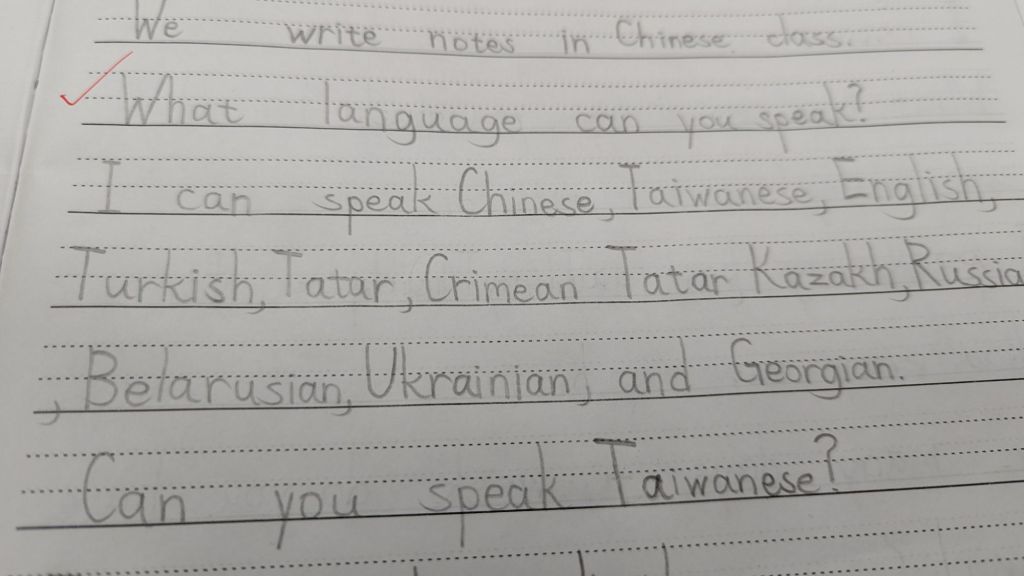 We write notes in Chinese class.
What language can you speak?
I can speak Chinese, Taiwanese, English,
Turkish, Tatar, Crimean Tatar Kazakh, Russia
, Belarusian, Ukrainian, and Georgian.
Can you speak Taiwanese?